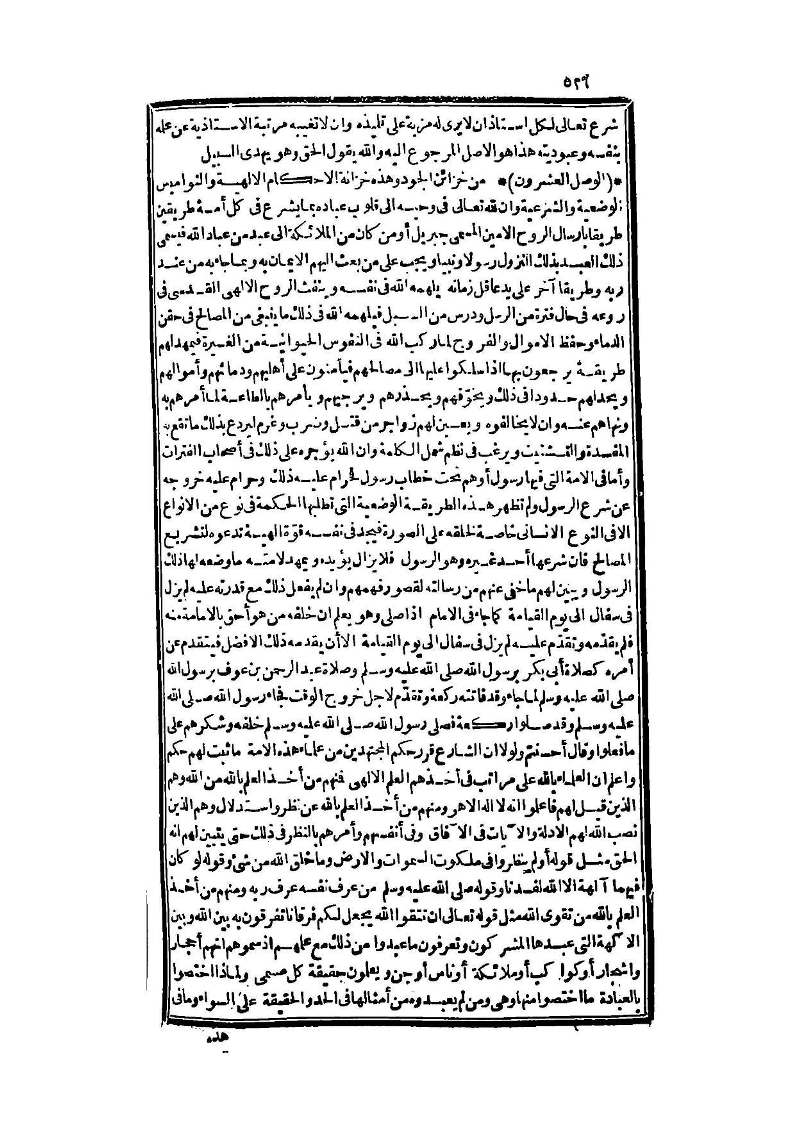 ٥٢٩
شرع تعالى لكل استاذ ان لا يرى له مزية على تلميذه وان لا تغيبه مرتبة الاستاذية عن علمه
بنفسه وعبوديته هذا هو الاصل المرجوع اليه والله يقول الحق وهو يهدى السبيل
*(الوصل العشرون)* من خزائن الجود وهذه خزانة الاحكام الالهية والنواميس
الوضعية والشرعية وان لله تعالى فى وحيه الى قلوب عباده بما يشرع فى كل أمة طريقين
طريقا بارسال الروح الامين المسمى جبريل أو من كان من الملائكة الى عبد من عباد الله فيسمى
ذلك العبد بذلك النزول رسولا ونبيا ويجب على من بعث اليهم الايمان به وبما جاء به من عند
ربه وطريقا آخر على يد عاقل زمانه يلهمه الله فى نفسه وينفث الروح الالهى القدسى فى
روعه فى حال فترة من الرسل ودرس من السبل فيلهمه الله فى ذلك ما ينبغى من المصالح فى حقن
الدماء وحفظ الاموال والفروج لما ركب الله فى النفوس الحيوانية من الغيرة فيمهد لهم
طريقة يرجعون بها اذا سلكوا عليها الى مصالحهم فيأمنون على أهليهم ودمائهم وأموالهم
ويحد لهم حدودا فى ذلك ويخوّفهم ويحذرهم ويرجيهم ويأمرهم بالطاعة لما أمرهم به
ونهاهم عنه وان لا يخالفوه ويعين لهم زواجر من قتل وضرب وغرم ليردع بذلك ما تقع به
المفسدة والتشتيت ويرغب فى نظم شمل الكلمة وان الله يؤجره على ذلك فى أصحاب الفترات
وأما فى الامة التى فيها رسول أو هم تحت خطاب رسول فحرام عليه ذلك وحرام عليه خروجه
عن شرع الرسول ولم تظهر هذه الطريقة الوضعية التى تطلبها الحكمة فى نوع من الانواع
الا فى النوع الانسانى خاصة لخلقه على الصورة فيجد فى نفسه قوة الهية تدعوه لتشريع
المصالح فان شرعها أحد غيره وهو الرسول فلا يزال يؤيده ويمهد لامته ما وضعه لها ذلك
الرسول ويبين لهم ما خفى عنهم من رسالته لقصور فهمهم وان لم يفعل ذلك مع قدرته عليه لم يزل
فى سفال الى يوم القيامة كما جاء فى الامام اذا صلى وهو يعلم ان خلفه من هو أحق بالامامة منه
فلم يقدمه وتقدم عليه لم يزل فى سفال الى يوم القيامة الا أن يقدمه ذلك الافضل فيتقدم عن
أمره كصلاة أبى بكر برسول الله صلى الله عليه وسلم وصلاة عبد الرحمن بن عوف برسول الله
صلى الله عليه وسلم لما جاء وقد فاتته ركعة وتقدّم لاجل خروج الوقت فجاء رسول الله صلى الله
عليه وسلم وقد صلوا ركعة فصلى رسول الله صلى الله عليه وسلم خلفه وشكرهم على
ما فعلوا وقال أحسنتم ولولا ان الشارع قرر حكم المجتهدين من علماء هذه الامة ما ثبت لهم حكم
واعلم ان العلماء بالله على مراتب فى أخذهم العلم الالهى فمنهم من أخذ العلم بالله من الله وهم
الذين قيل لهم فاعلموا انه لا اله الا هو ومنهم من أخذ العلم بالله عن نظر واستدلال وهم الذين
نصب الله لهم الادلة والآيات فى الآفاق وفى أنفسهم وأمرهم بالنظر فى ذلك حتى يتبين لهم انه
الحق مثل قوله أولم ينظروا فى ملكوت السموات والارض وما خلق الله من شئ وقوله لو كان
فيهما آلهة الا الله لفسدتا وقوله صلى الله عليه وسلم من عرف نفسه عرف ربه ومنهم من أخذ
العلم بالله من تقوى الله مثل قوله تعالى ان تتقوا الله يجعل لكم فرقانا تفرقون به بين الله وبين
الآلهة التى عبدها المشركون وتعرفون ما عبدوا من ذلك مع علمهم اذ سموهم انهم أحجار
واشجار أو كواكب أو ملائكة أو ناس أو جن ويعلمون حقيقة كل مسمى ولماذا اختصوا
بالعبادة ما اختصوا منها وهى ومن لم يعبدوه من أمثالها فى الحد والحقيقة على السواء وما فى
هذه